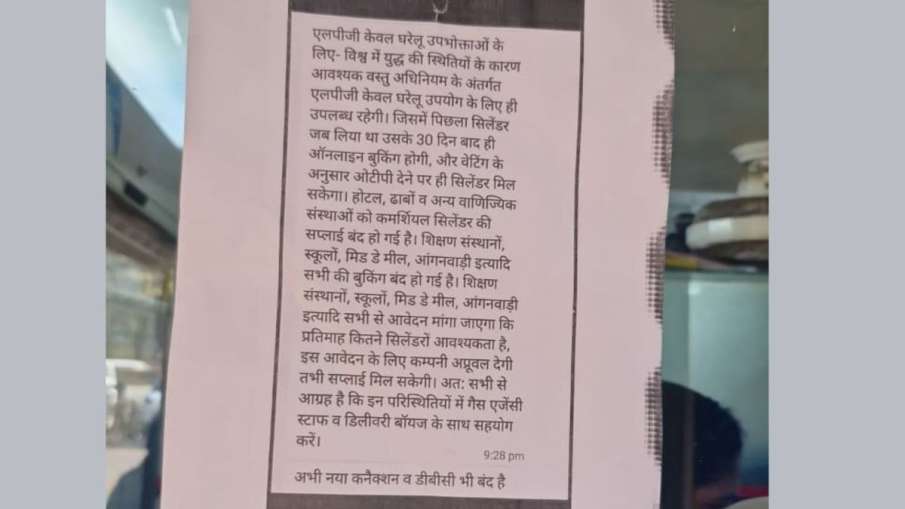 एलपीजी केवल घरेलू उपभोक्ताओं के
लिए- विश्व में युद्ध की स्थितियों के कारण
आवश्यक वस्तु अधिनियम के अंतर्गत
एलपीजी केवल घरेलू उपयोग के लिए ही
उपलब्ध रहेगी। जिसमें पिछला सिलेंडर
जब लिया था उसके 30 दिन बाद ही
ऑनलाइन बुकिंग होगी, और वेटिंग के
अनुसार ओटीपी देने पर ही सिलेंडर मिल
सकेगा। होटल, ढाबों व अन्य वाणिज्यिक
संस्थाओं को कमर्शियल सिलेंडर की
सप्लाई बंद हो गई है। शिक्षण संस्थानों,
स्कूलों, मिड डे मील, आंगनवाड़ी इत्यादि
सभी की बुकिंग बंद हो गई है। शिक्षण
संस्थानों, स्कूलों, मिड डे मील, आंगनवाड़ी
इत्यादि सभी से आवेदन मांगा जाएगा कि
प्रतिमाह कितने सिलेंडरों आवश्यकता है,
इस आवेदन के लिए कम्पनी अप्रूवल देगी
तभी सप्लाई मिल सकेगी। अत: सभी से
आग्रह है कि इन परिस्थितियों में गैस एजेंसी
स्टाफ व डिलीवरी बॉयज के साथ सहयोग
करें।
9:28 pm
अभी नया कनैक्शन व डीबीसी भी बंद है